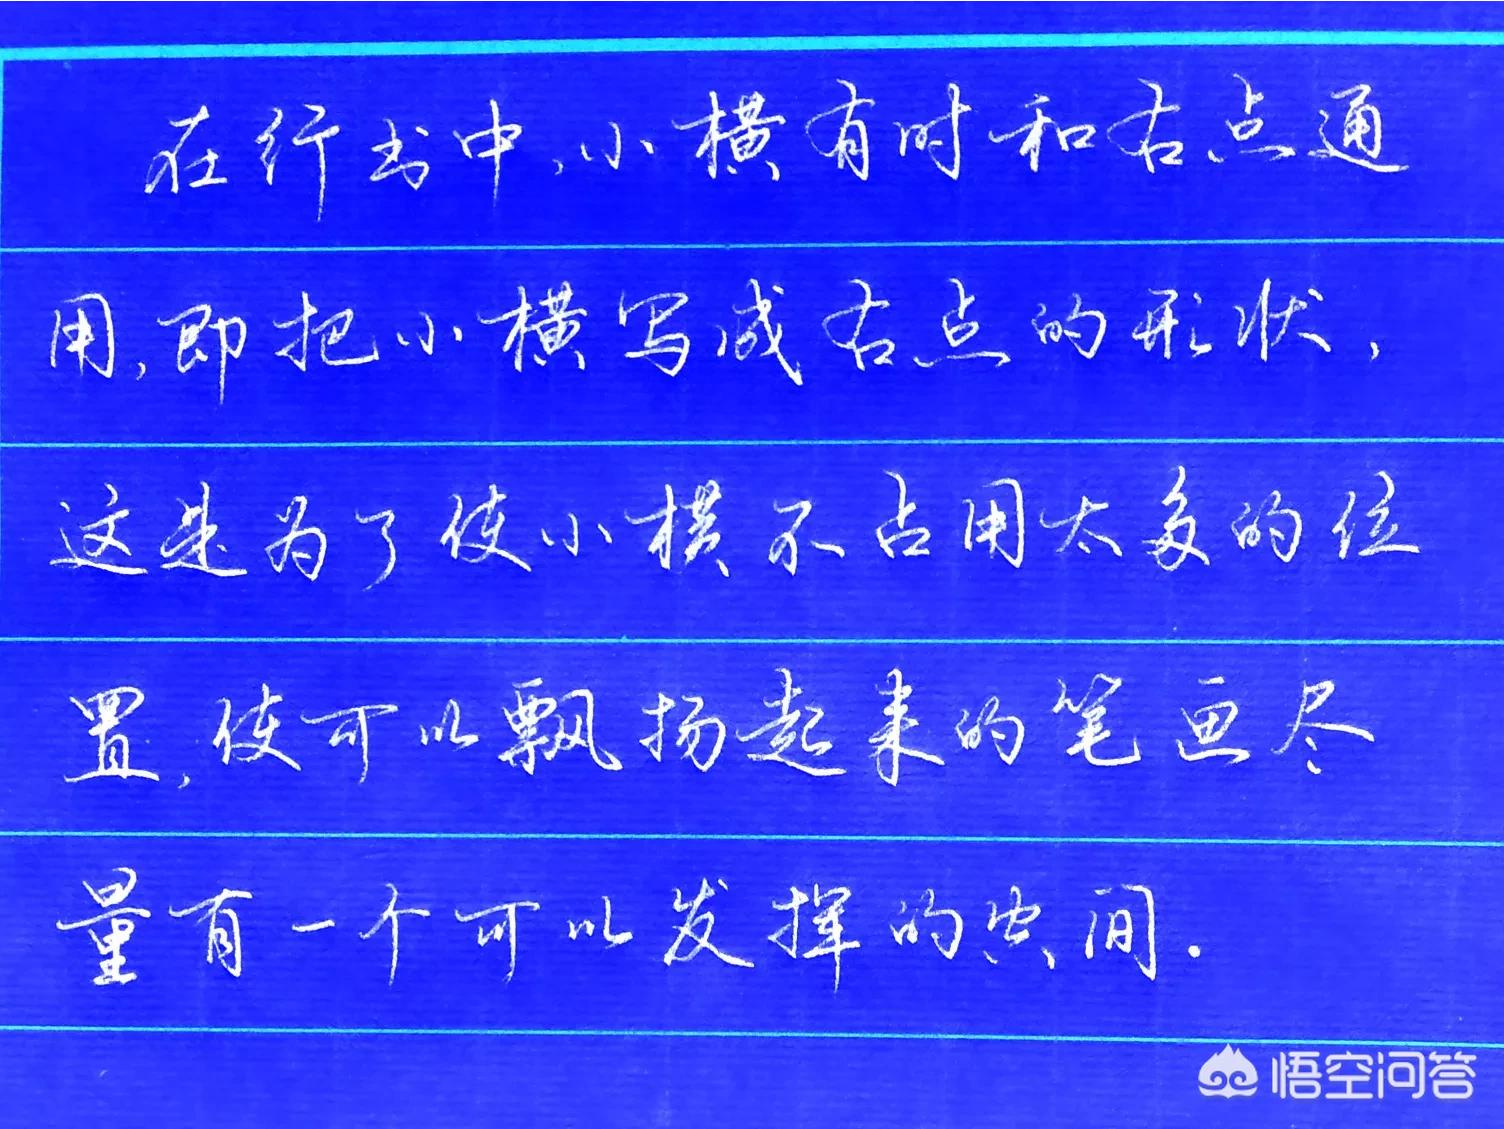 在行书中,小横有时和右点通
用,即把小横写成右点的形状,
这是为了使小横不占用太多的位
置,使可以飘扬起来的笔画尽
量有一个可以发挥的空间.
悟空问答